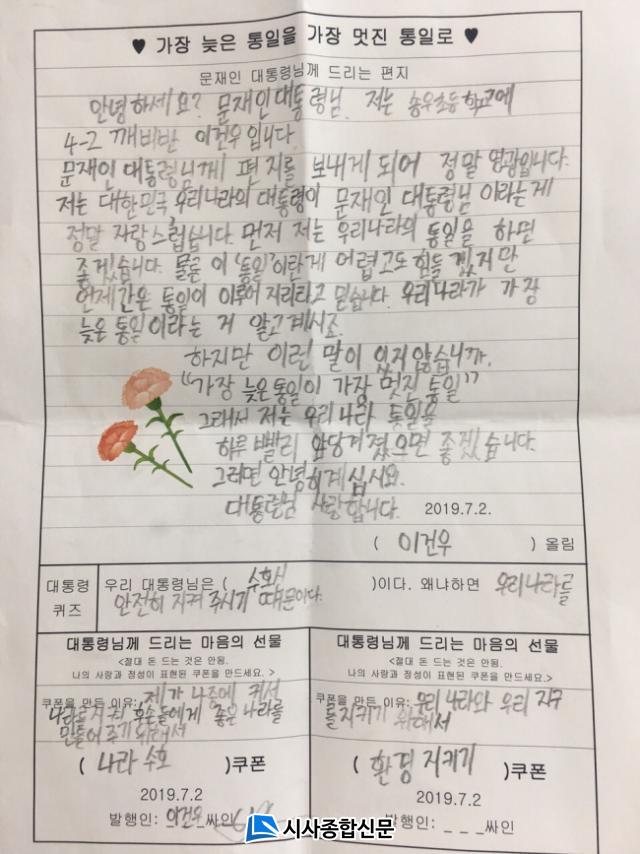 ♥ 가장 늦은 통일을 가장 멋진 통일로 ♥
문재인 대통령님께 드리는 편지
안녕하세요? 문재인대통령님. 저는 송우초등학교에
4-2 깨비반 이건우입니다.
문재인 대통령님께 편지를 보내게 되어 정말 영광입니다.
저는 대한민국 우리나라의 대통령이 문재인 대통령님 이라는게
정말 자랑스럽습니다. 먼저 저는 우리나라의 통일을 하면
좋겠습니다. 물론 이 '통일'이란게 어렵고도 힘들겠지만
언제간은 통일이 이루어 지리라고 믿습니다. 우리나라가 가장
늦은 통일이라는 거 알고계시죠.
하지만 이런 말이 있지않습니까.
"가장 늦은통일이 가장 멋진 통일"
그래서 저는 우리나라 통일을
하루 빨리 앞당겨졌으면 좋겠습니다.
그러면 안녕히계십시요.
대통령님 사랑합니다. 2019.7.2.
( 이건우 ) 올림
대통령 퀴즈
우리 대통령님은 ( 수호신 )이다. 왜냐하면 우리나라를
안전히 지켜 주시기 때문이다.
대통령님께 드리는 마음의 선물
<절대 돈 드는 것은 안됨.
나의 사랑과 정성이 표현된 쿠폰을 만드세요.>
쿠폰을 만든 이유: 제가 나중에 커서
나라를지켜 후손들에게 좋은 나라를
만들어 주기 위해서
( 나라 수호 )쿠폰
2019.7.2
발행인: 이건우 싸인
대통령님께 드리는 마음의 선물
<절대 돈 드는 것은 안됨.
나의 사랑과 정성이 표현된 쿠폰을 만드세요.>
쿠폰을 만든 이유: 우리 나라와 우리 지구
를지키기 위해서
( 환경 지키기 )쿠폰
2019.7.2
발행인: _ _ _싸인
시사종합신문